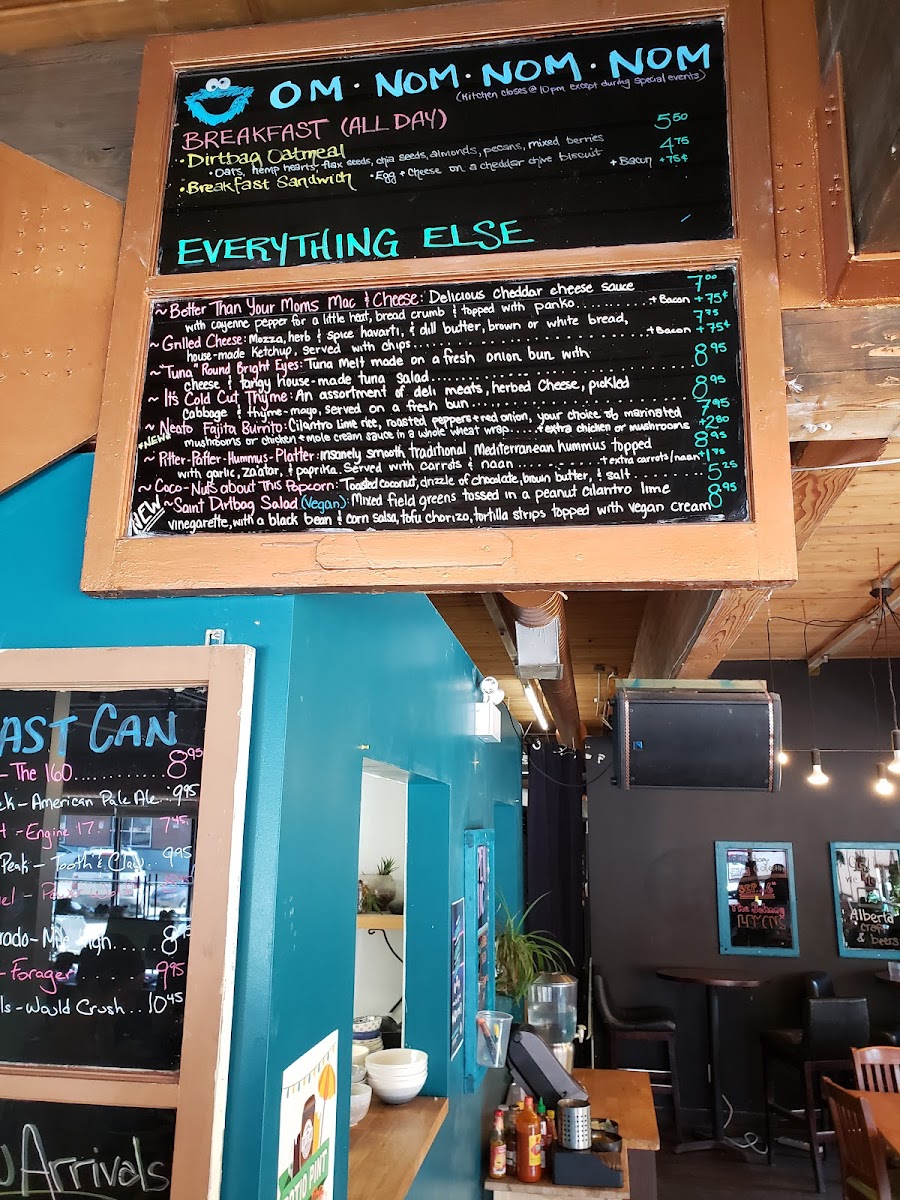 OM · NOM · NOM · NOM
(Kitchen closes @ 10pm except during special events)
BREAKFAST (ALL DAY)
• Dirtbag Oatmeal 5⁵⁰
• Oats, hemp hearts, flax seeds, chia seeds, almonds, pecans, mixed berries
• Breakfast Sandwich • Egg + Cheese on a cheddar chive biscuit 4⁷⁵
+ Bacon +75¢
EVERYTHING ELSE
~ Better Than Your Moms Mac & Cheese: Delicious cheddar cheese sauce 7⁰⁰
with cayenne pepper for a little heat, bread crumb & topped with panko......... + Bacon +75¢
~ Grilled Cheese: Mozza, herb & spice havarti, & dill butter, brown or white bread, 7⁷⁵
house-made Ketchup, served with chips............ + Bacon +75¢
~ "Tuna" Round Bright Eyes: Tuna Melt made on a fresh onion bun with
cheese & tangy house-made tuna salad............ 8⁹⁵
~ Its Cold Cut Thyme: An assortment of deli meats, herbed Cheese, pickled
Cabbage & thyme-mayo, served on a fresh bun............ 8⁹⁵
~ Neato Fajita Burrito: Cilantro lime rice, roasted peppers + red onion, your choice of marinated 7⁹⁵
*NEW* mushrooms or chicken + mole cream sauce in a whole wheat wrap..... + extra chicken or mushrooms +2⁸⁰
~ Pitter-Patter-Hummus-Platter: insanely smooth traditional Mediterranean hummus topped 8⁹⁵
with garlic, za'atar, & paprika. Served with carrots & naan......... + extra carrots/naan +1⁷⁵
~ Coco-Nuts about This Popcorn: Toasted coconut, drizzle of chocolate, brown butter, & salt......... 5²⁵
NEW ~ Saint Dirtbag Salad (Vegan): Mixed field greens tossed in a peanut cilantro lime 8⁹⁵
vinegarette, with a black bean & corn salsa, tofu chorizo, tortilla strips topped with vegan cream
AST CAN
- The 160............ 8⁹⁵
ek - American Pale Ale.. 9⁹⁵
- Engine 17. 7⁴⁵
Peak - Tooth & Claw.. 9⁹⁵
el -
rado - Mile High......
- Forager 9⁹⁵
ls - Would Crush.. 10⁴⁵
Arrivals
PATIO PINT
The Johnny
LEMONS
Alberta
craft
& beers